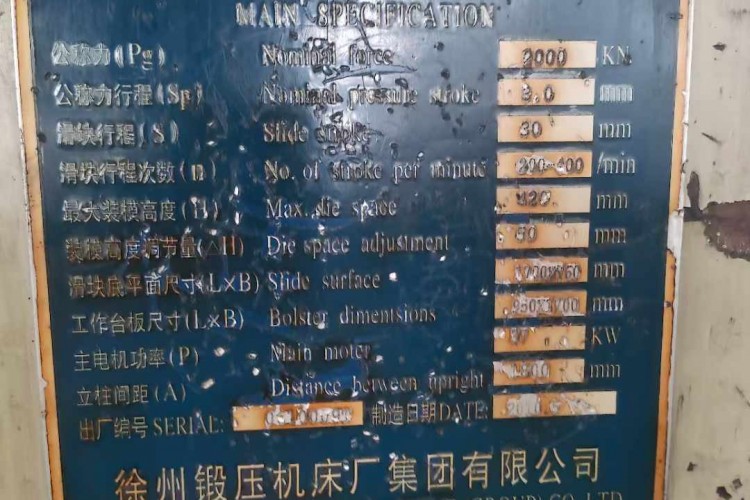 MAIN SPECIFICATION
公称力(Pg) Nominal force 2000 KN
公称力行程(Sp) Nominal pressule stroke 3.0 mm
滑块行程(S) Slide stroke 30 mm
滑块行程次数(n) No. of stroke per minute 200-400 /min
最大装模高度(H) Max. die space mm
装模高度调节量(△H) Die space adjustment 50 mm
滑块底平面尺寸(L×B) Slide surface mm
工作台板尺寸(L×B) Bolster dimentsions mm
主电机功率(P) Main moter KW
立柱间距(A) Distance between upright mm
出厂编号 SERIAL: 制造日期DATE:
徐州锻压机床厂集团有限公司